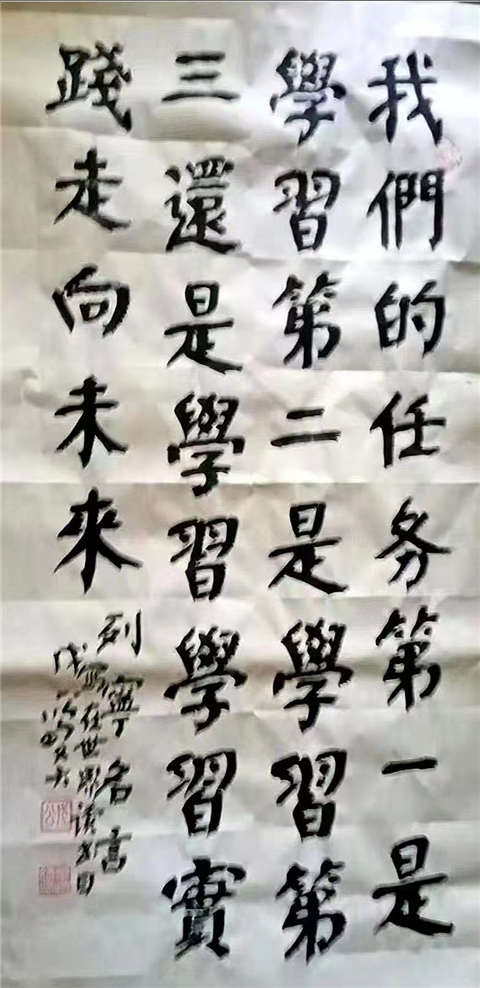 我們的任务第一是
學習第二是學習第
三還是學習學習實
踐走向未來
列寧名言
寫在世界讀書日
戊